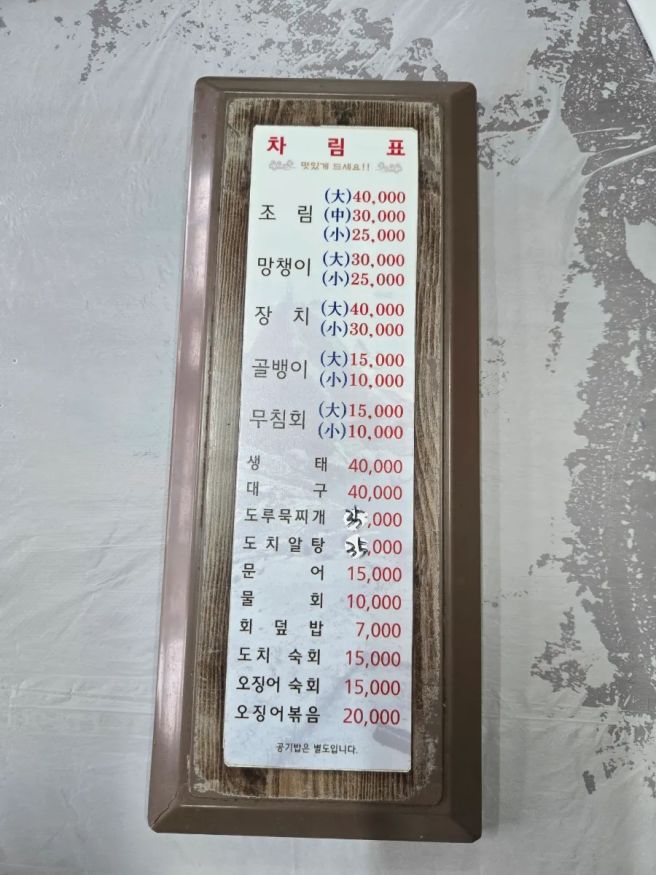 차 림 표
맛있게 드세요!!
조 림 (大)40,000
(中)30,000
(小)25,000
망챙이 (大)30,000
(小)25,000
장 치 (大)40,000
(小)30,000
골뱅이 (大)15,000
(小)10,000
무침회 (大)15,000
(小)10,000
생 태 40,000
대 구 40,000
도루묵찌개 35,000
도치알탕 35,000
문 어 15,000
물 회 10,000
회 덮 밥 7,000
도치 숙회 15,000
오징어 숙회 15,000
오징어볶음 20,000
공기밥은 별도입니다.